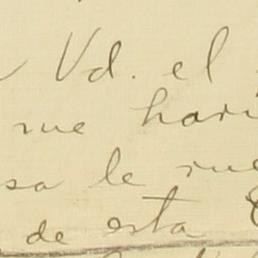 Vd. el
me hari
sa le rue
de esta